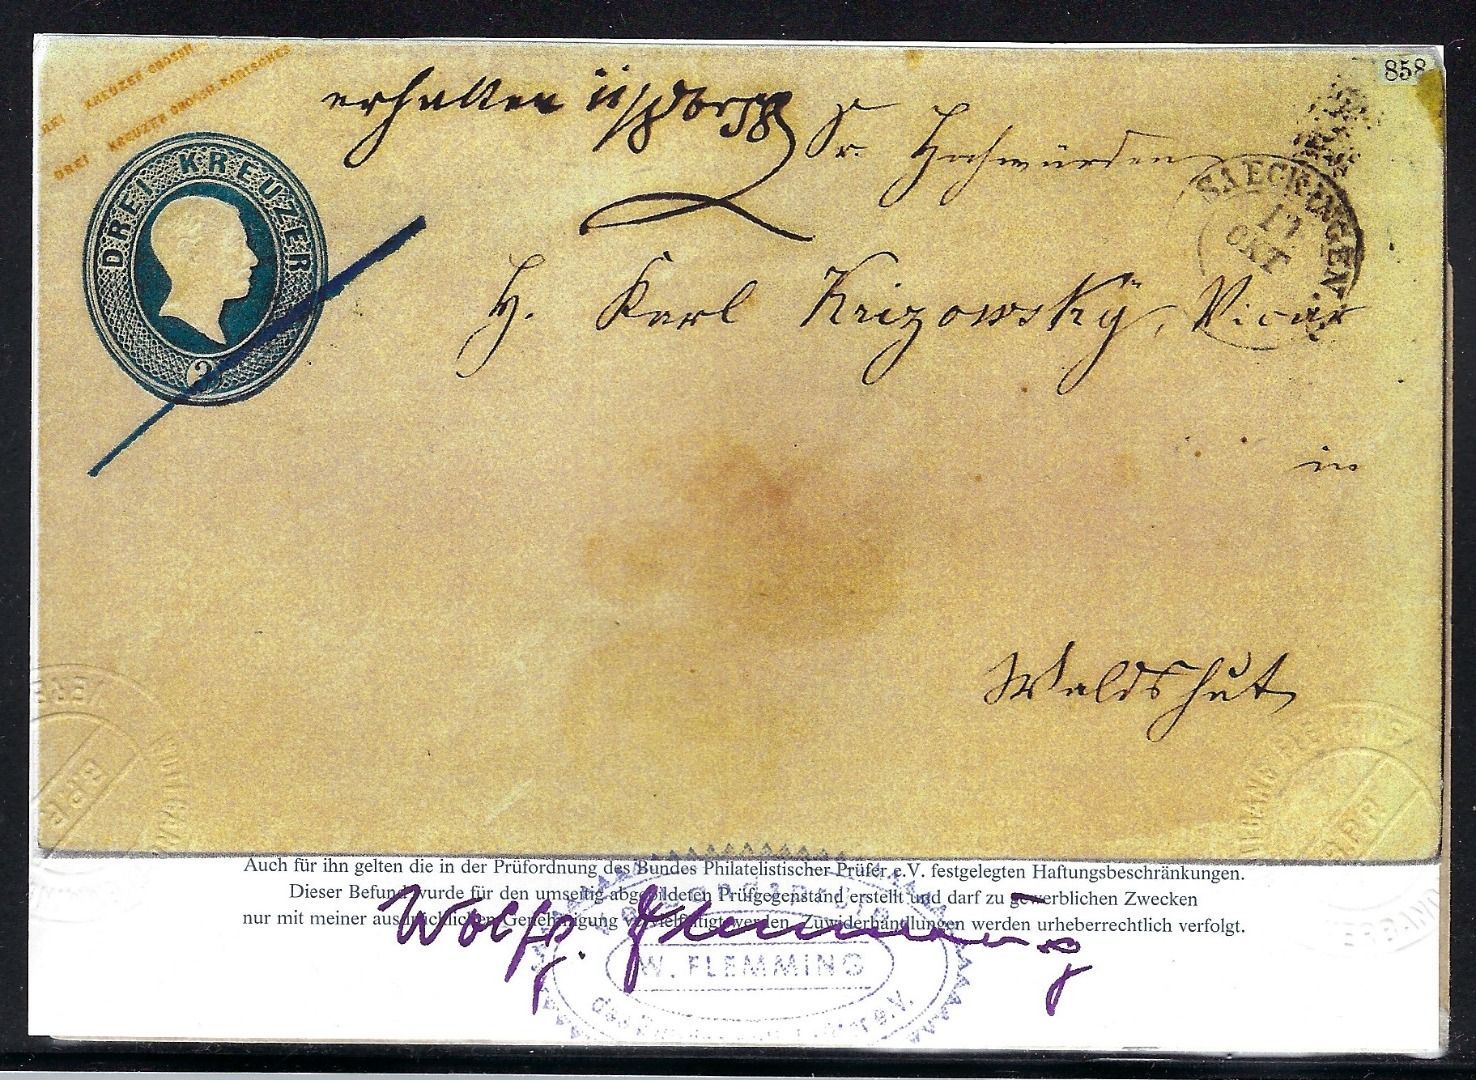 KREUZER GROSH
DREI KREUZER GROSSH. BADISCHES
858
DREI KREUZER
3
erhalten
Sr. Hochwürden
SAECKINGEN
17
OKT
H. Karl Krizowsky, Vicar
in
Waldshut
VEREI
B.P.P.
WOLFGANG FLEMMING
B.P.P.
Auch für ihn gelten die in der Prüfordnung des Bundes Philatelistischer Prüfer e.V. festgelegten Haftungsbeschränkungen.
Dieser Befund wurde für den umseitig abgebildeten Prüfgegenstand erstellt und darf zu gewerblichen Zwecken
nur mit meiner ausdrücklichen Genehmigung vervielfältigt werden. Zuwiderhandlungen werden urheberrechtlich verfolgt.
Wolfg. Flemming
W. FLEMMING